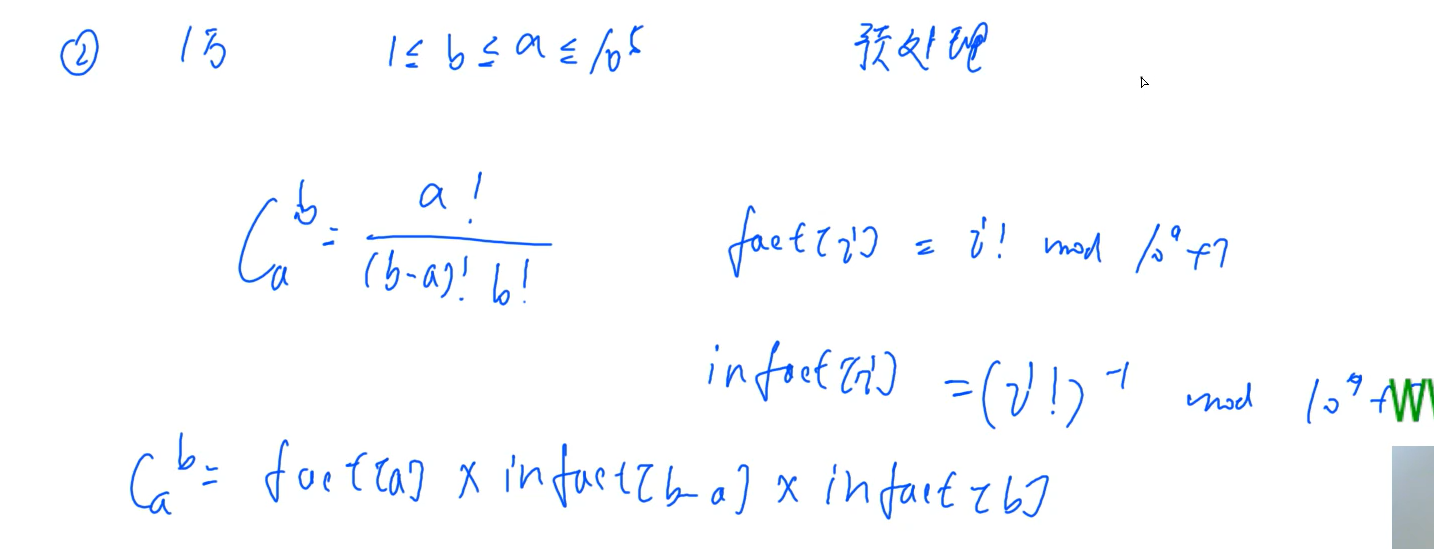 ② 1万 1≤b≤a≤10⁵ 预处理
C_a^b = a! / (b-a)! b!
fact[i] = i! mod 10⁹+7
infact[i] = (i!)⁻¹ mod 10⁹+
C_a^b = fact[a] × infact[b-a] × infact[b]